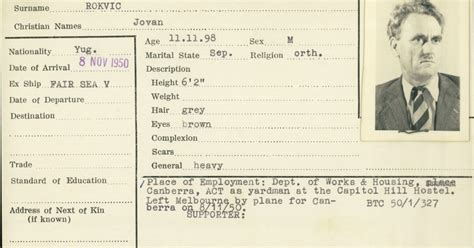 Surname ROKVIC
Christian Names Jovan
Nationality Yug.
Date of Arrival 8 NOV 1950
Ex Ship FAIR SEA V
Date of Departure
Destination
Trade
Standard of Education
Address of Next of Kin
(if known)
Age 11.11.98 Sex M
Marital State Sep. Religion orth.
Description
Height 6'2"
Weight
Hair grey
Eyes brown
Complexion
Scars
General heavy
Place of Employment: Dept. of Works & Housing,
Canberra, ACT as yardman at the Capitol Hill Hostel.
Left Melbourne by plane for Can-
berra on 8/11/50. BTC 50/1/327
SUPPORTER: